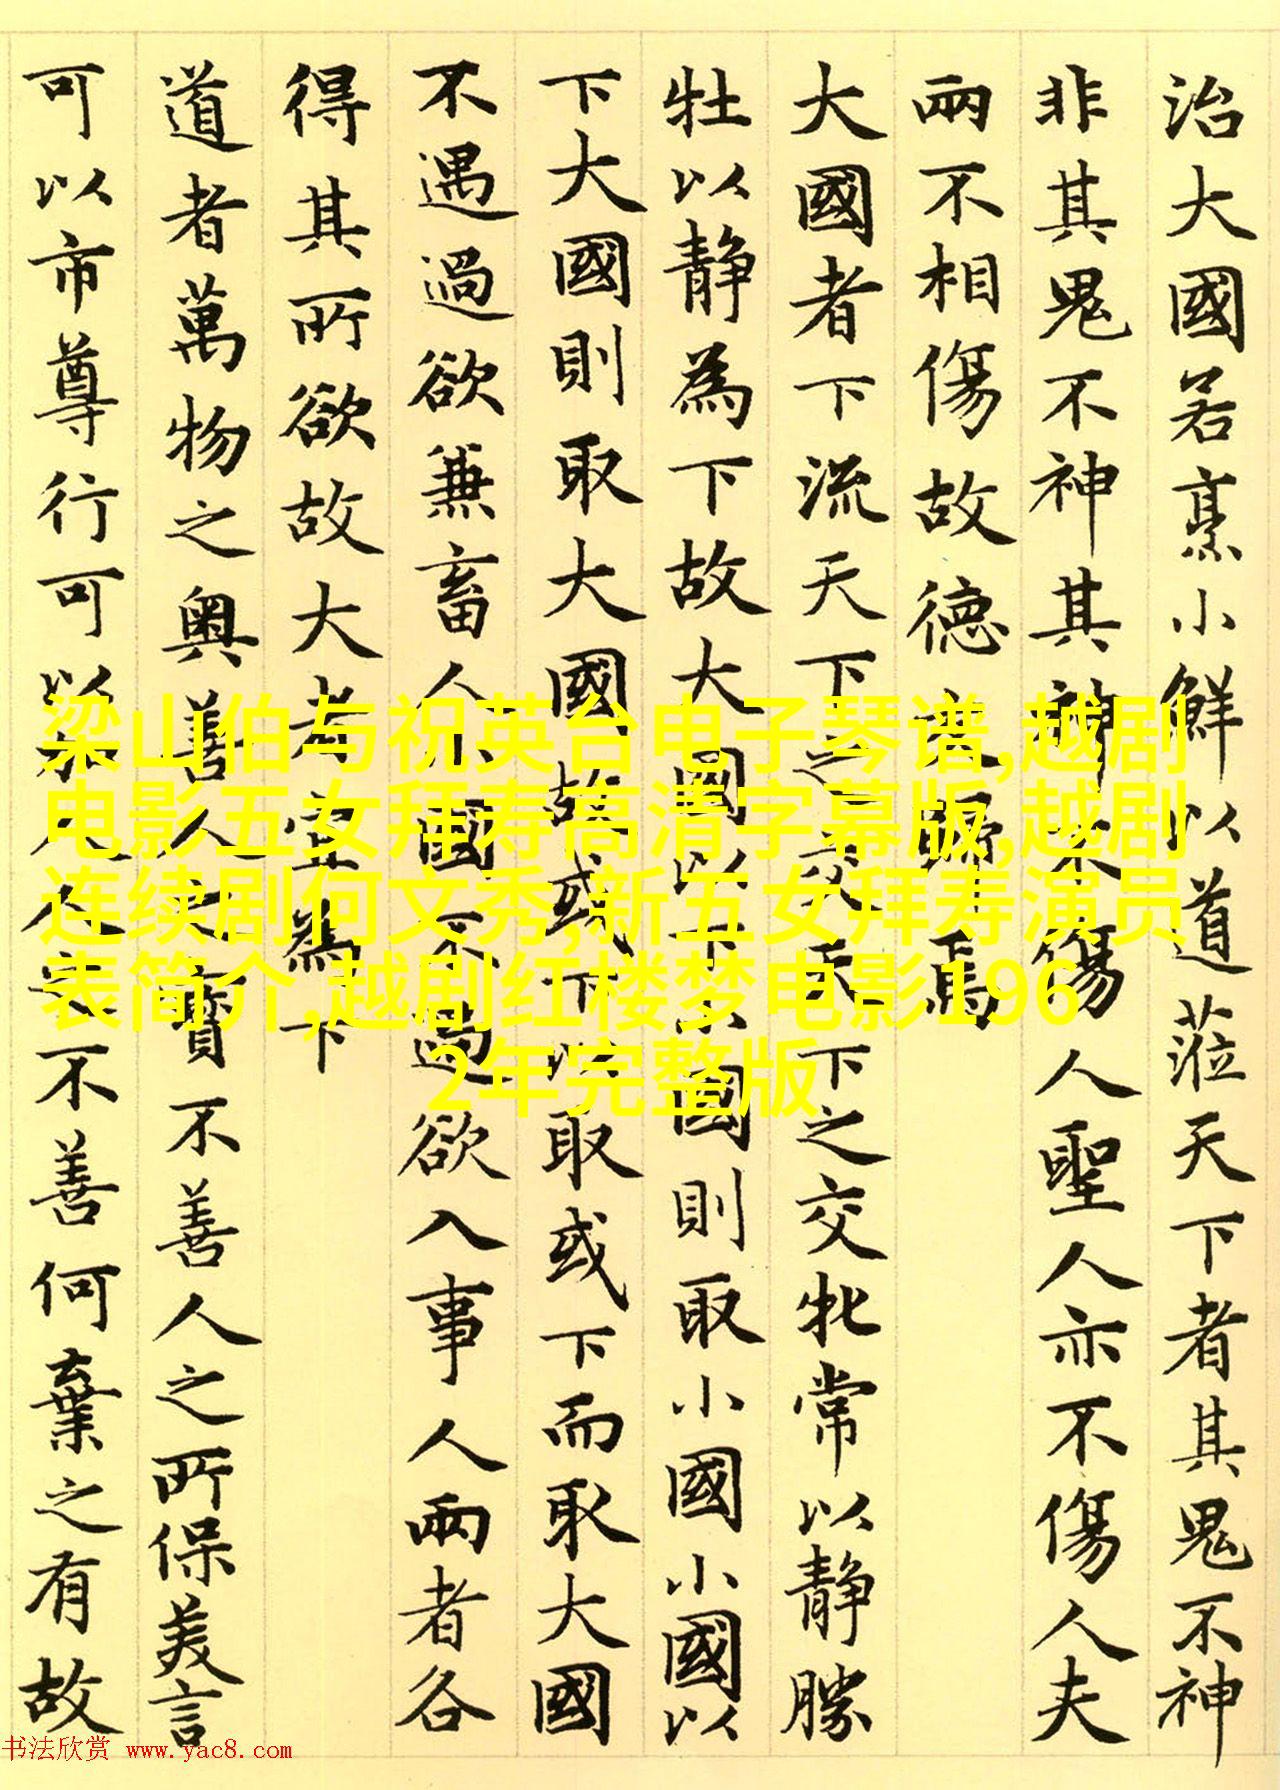 治大國若烹小鮮以道蒞天下者其鬼不神
非其鬼不神其神不傷人聖人亦不傷人夫
兩不相傷故德交歸焉
大國者下流天下之交天下之交牝常以靜勝
牡以靜為下故大國以下小國則取小國小國以
下大國則取大國故或下以取或下而取大國
不遇過欲兼畜人小國不過欲入事人兩者各
得其所欲故大者宜為下
道者萬物之奧善人之寶不善人之所保美言
可以市尊行可以加人人之不善何棄之有故
梁山伯与祝英台电子琴谱,越剧
电影五女拜寿高清字幕版,越剧
连续剧何文秀,新五女拜寿演员
表简介,越剧红楼梦电影196
2年完整版
书法欣赏 www.yac8.com